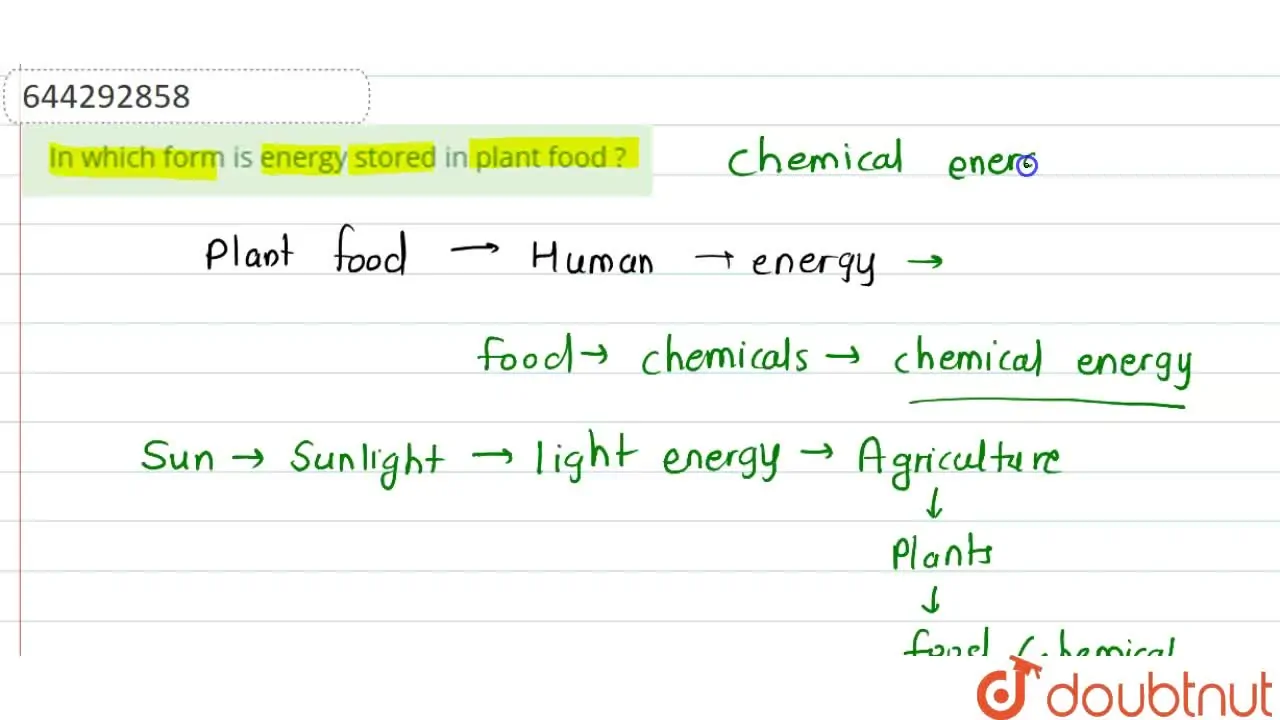 644292858
In which form is energy stored in plant food ? Chemical ener
Plant food → Human → energy →
food → chemicals → chemical energy
Sun → Sunlight → light energy → Agriculture
↓
Plants
↓
food Chemical
doubtnut